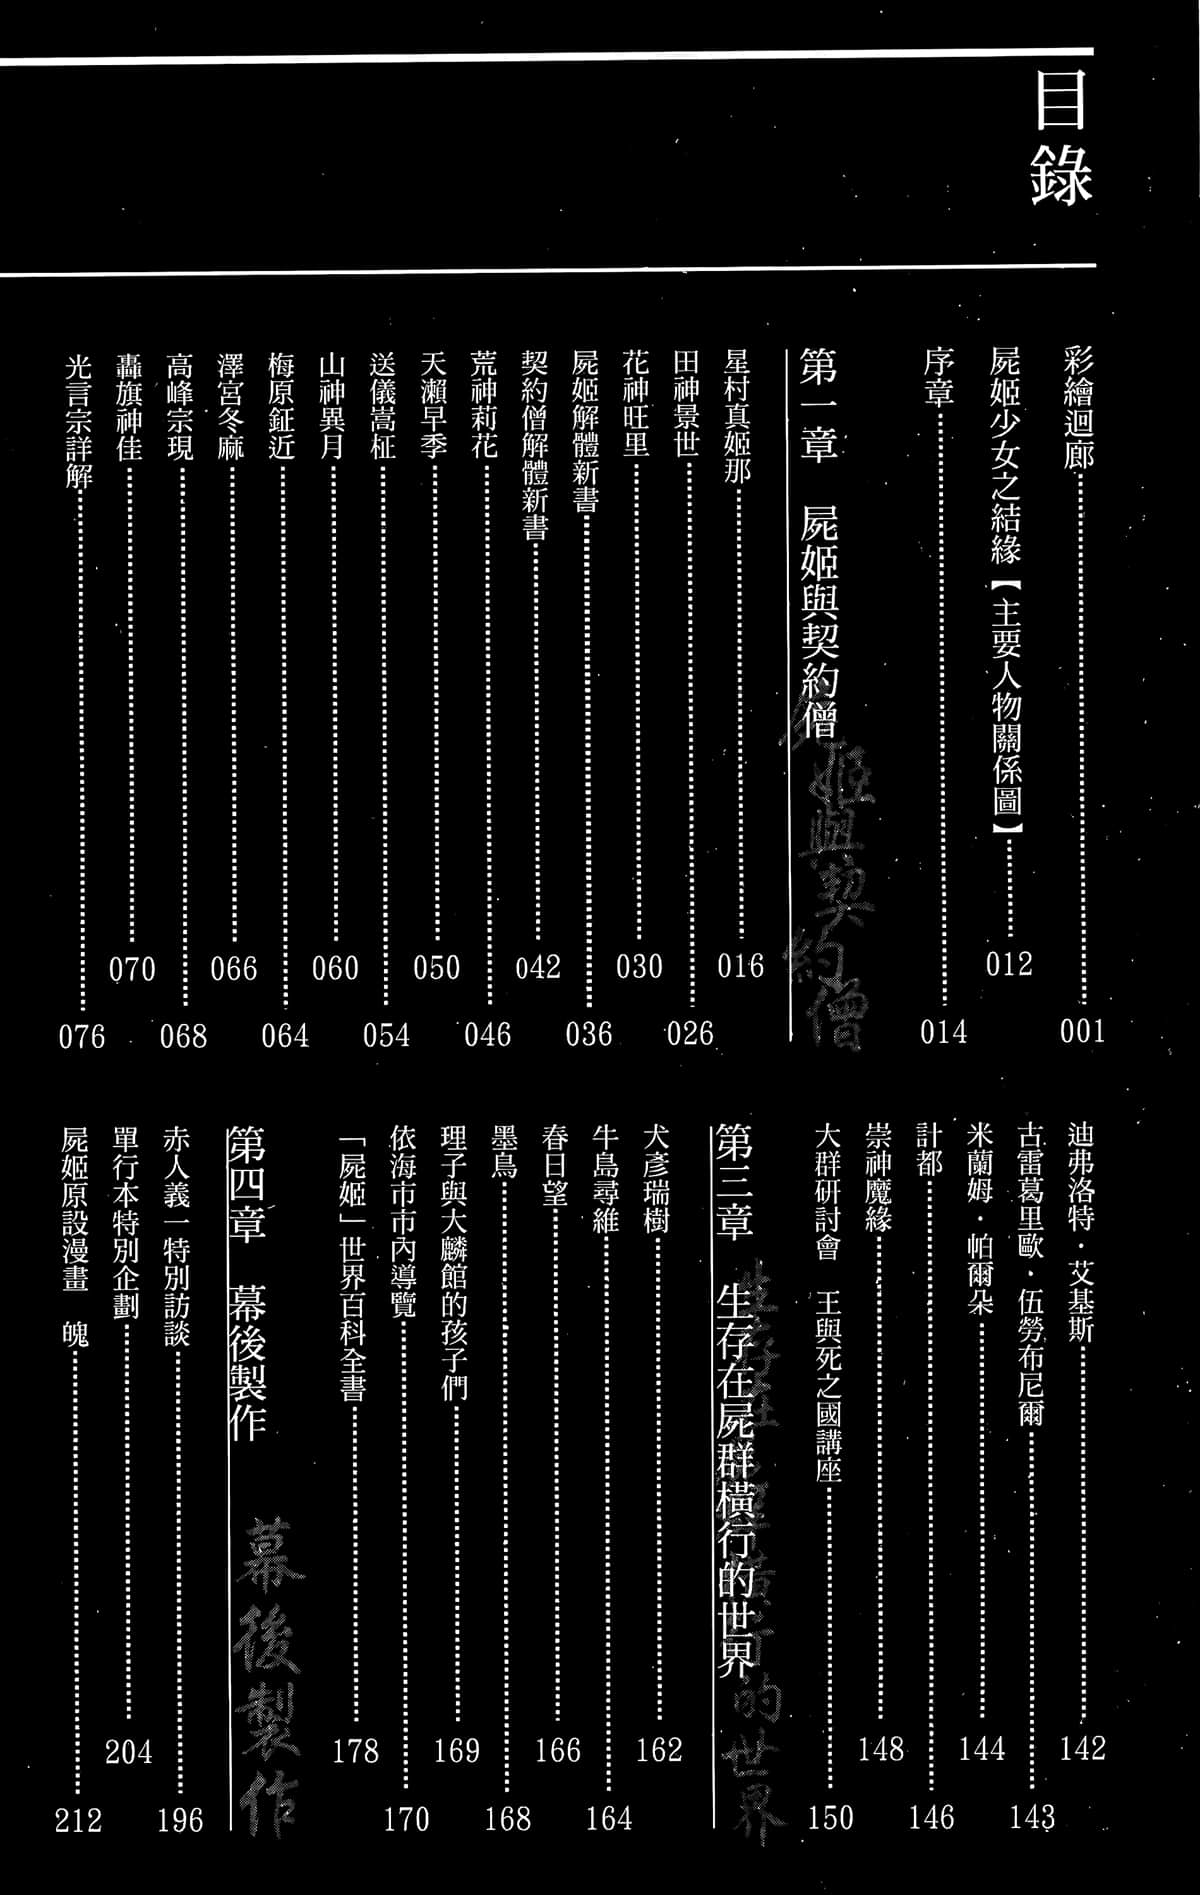 目錄
彩繪迴廊 001
屍姬少女之結緣【主要人物關係圖】 012
序章 014
第一章 屍姬與契約僧
屍姬與契約僧
星村真姬那 016
田神景世 026
花神旺里 030
屍姬解體新書 036
契約僧解體新書 042
荒神莉花 046
天瀨早季 050
送儀嵩柾 054
山神異月 060
梅原鉦近 064
澤宮冬麻 066
高峰宗現 068
轟旗神佳 070
光言宗詳解 076
迪弗洛特·艾基斯 142
古雷葛里歐·伍勞布尼爾 143
米蘭姆·帕爾朵 144
計都 146
崇神魔緣 148
大群研討會 王與死之國講座 150
第三章 生存在屍群橫行的世界
生存在屍群橫行的世界
犬彥瑞樹 162
牛島尋維 164
春日望 166
墨鳥 168
理子與大麟館的孩子們 169
依海市市內導覽 170
「屍姬」世界百科全書 178
第四章 幕後製作
幕後製作
赤人義一特別訪談 196
單行本特別企劃 204
屍姬原設漫畫 魄 212